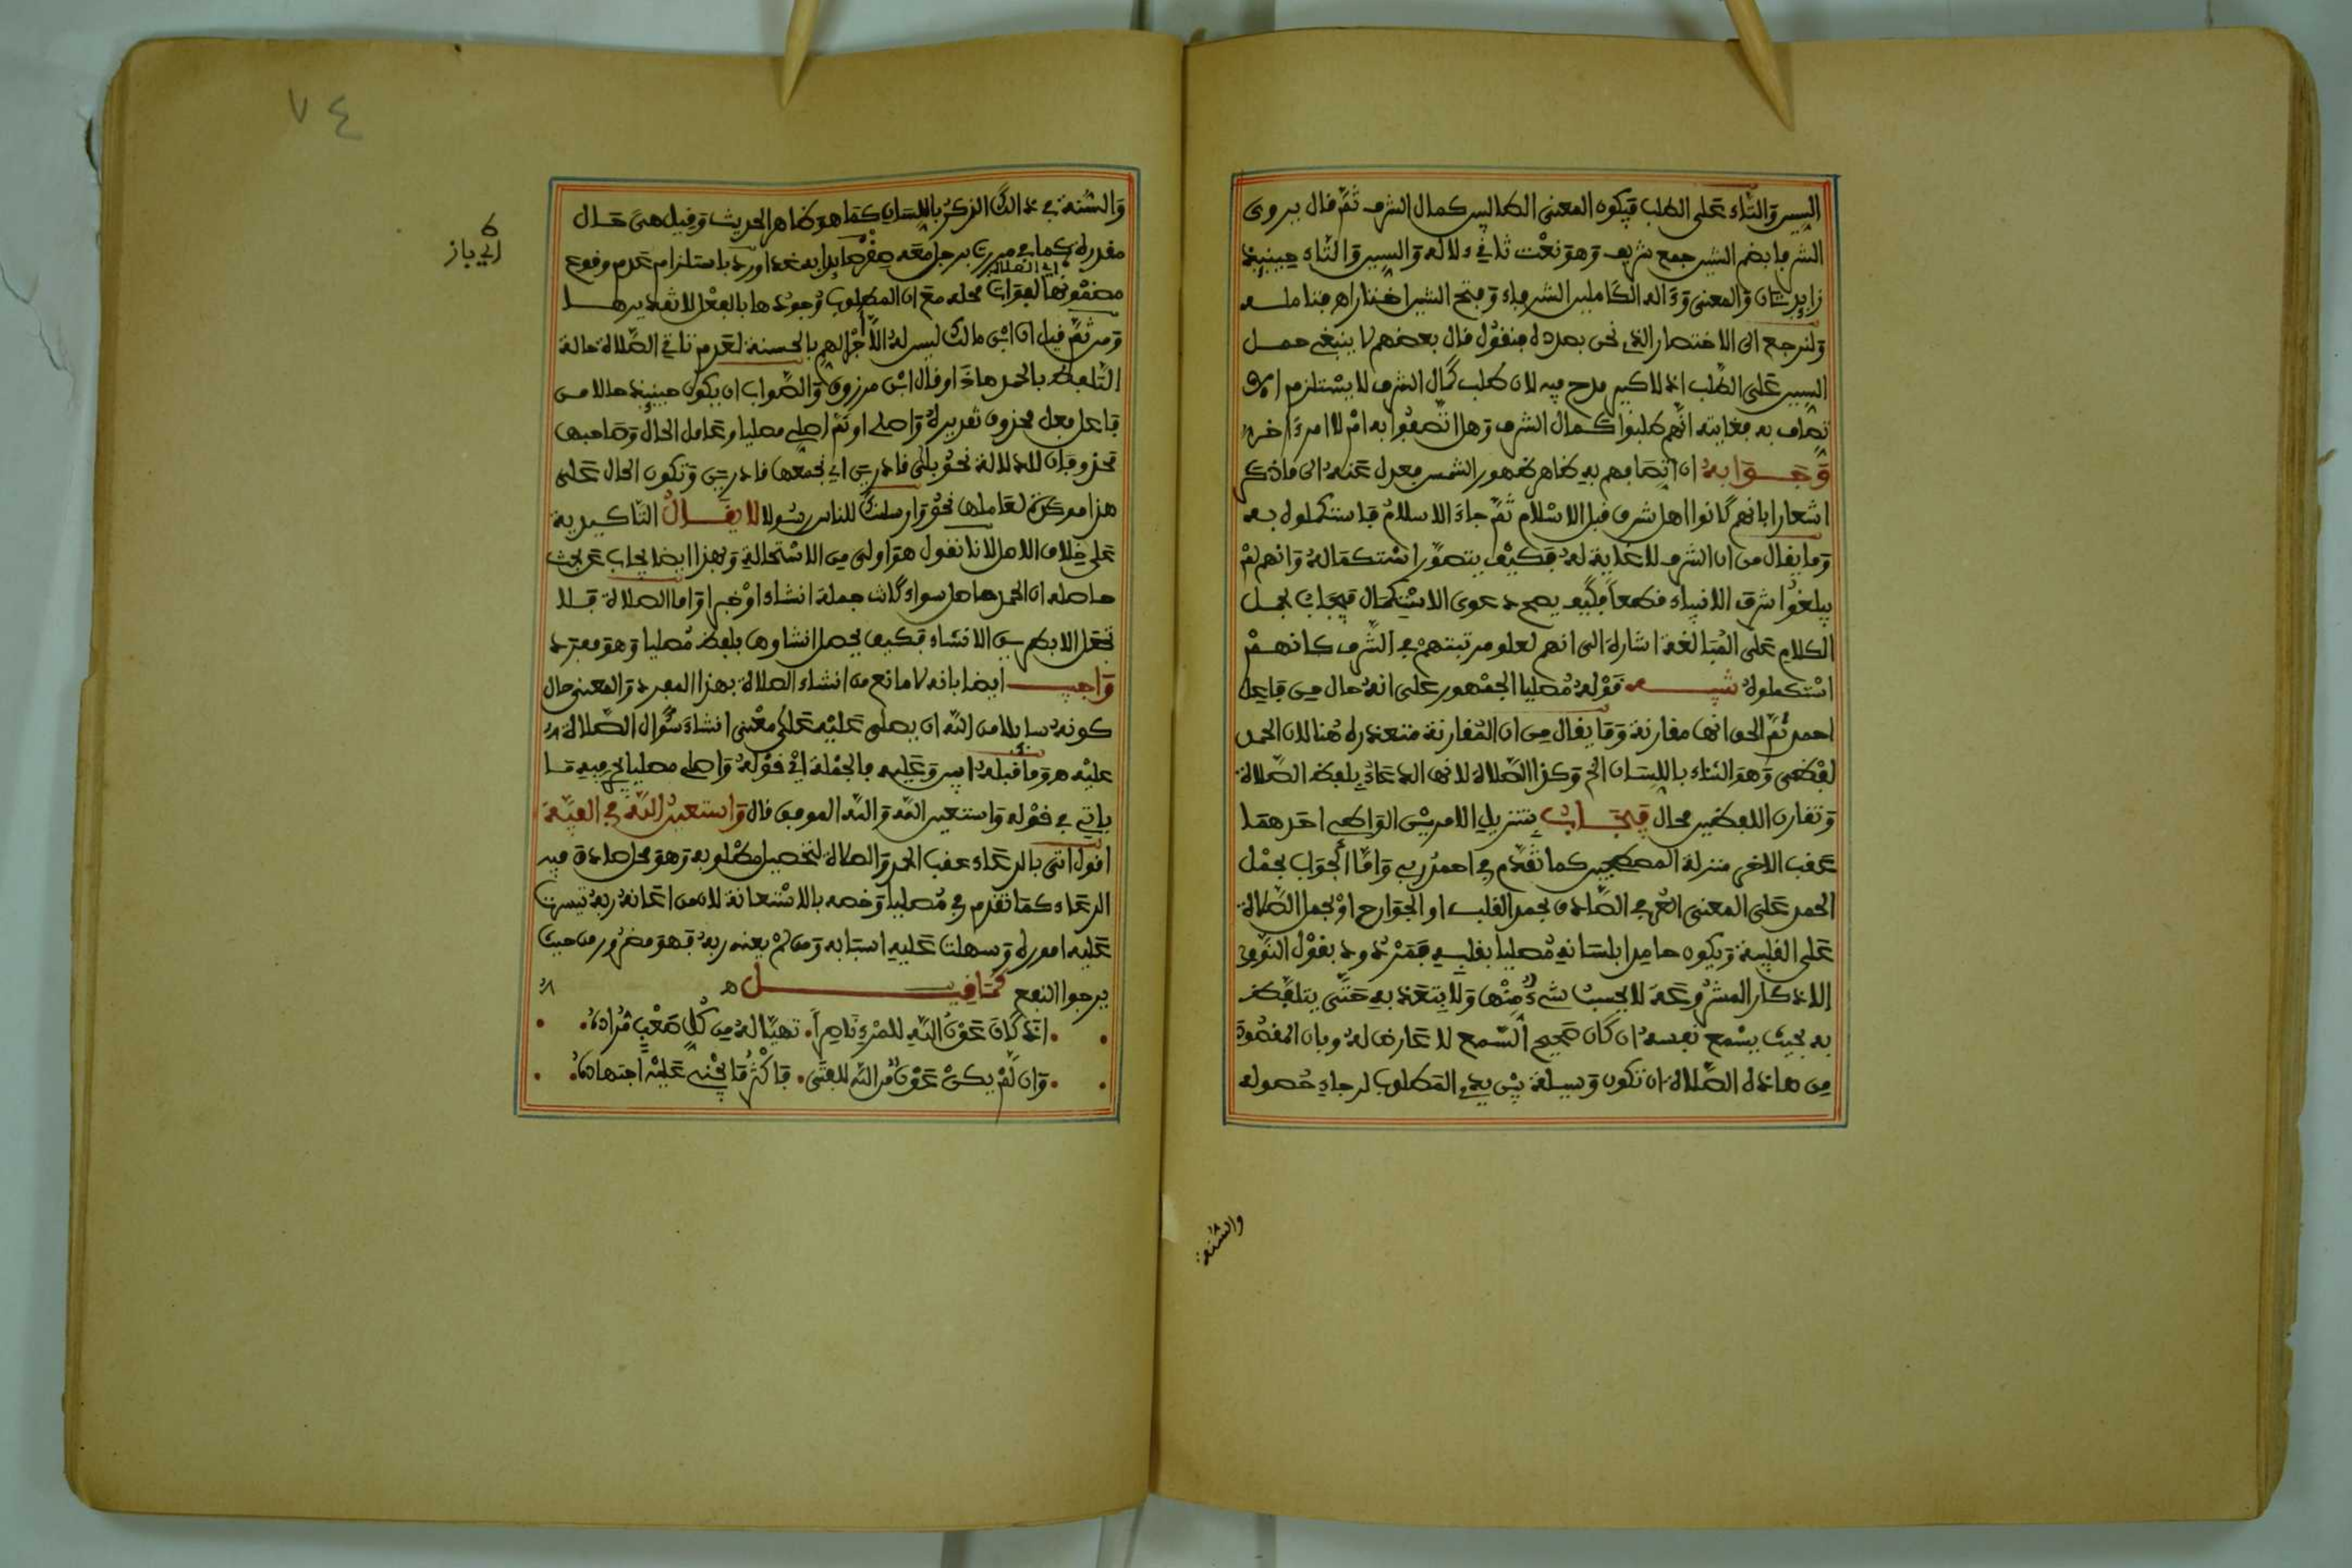 السين والتاء على الطلب فيكون المعنى الطالبين كمال الشرف ثم قال يروى
الشرفا بضم الشين جمع شريف وهو نعت ثان في ءلاله والسين والتاء حينئذ
زايدتان والمعنى وءاله الكاملين الشرفاء وفتح الشين اختاراهر فتامله
ولنرجع الى الاختصار الذي نحن بصدده فنقول قال بعضهم لا ينبغي حمل
السين على الطلب اذ لا كبير مدح فيه لان طلب كمال الشرف لا يستلزم الا
تصاف به فغايته انهم طلبوا كمال الشرف وهل اتصفوا به ام لا امر ءاخر
وجوابه ان اتصافهم به ظاهر ظهور الشمس فعدل عنه الى ماذكر
اشعارا بانهم كانوا اهل شرف قبل الاسلام ثم جاء الاسلام فاستكملوه به
وما يقال من ان الشرف لا غاية له فكيف يتصور استكماله وانهم لم
يبلغوا شرف الانبياء قطعا فكيف يصح دعوى الاستكمال فيجاب بحمل
الكلام على المبالغة اشارة الى انهم لعلو مرتبتهم في الشرف كانهم
استكملوه تنبيه قوله مصليا الجمهور على انه حال من فاعل
احمد ثم الحق انها مقارنة وما يقال من ان المقارنة متعذرة هنا لان الحمد
لفظي وهو الثناء باللسان الخ وكذا الصلاة لانها الدعاء بلفظ الصلاة
وتقارن اللفظين محال فيجاب بتنزيل الامرين الواقع احدهما
عقب الاخر منزلة المصطحبين كما تقدم في احمد ربي واما الجواب بحمل
الحمد على المعنى العرفي الصادق بحمد القلب او الجوارح او بحمل الصلاة
على القلبية ويكون حامدا بلسانه مصليا بقلبه فمردود بقول النووي
الاذكار المشروعة لا يحسب شيء منها ولا يعتد به حتى يتلفظ
به بحيث يسمع نفسه ان كان صحيح السمع لا عارض له وبان المقصود
من هاذه الصلاة ان تكون وسيلة بين يدي المطلوب لرجاء حصوله
والسنة
٧٤
والسنة في ذالك الذكر باللسان كما هو ظاهر الحديث وقيل هي حال
مقدرة كما في مررت برجل معه صقر صايدا به غدا ورد باستلزام عدم وقوع
اي الصلاة
مضمونها لفوات محله مع ان المطلوب وجودها بالفعل لا تقديرها
ومن ثم قيل ان ابن مالك ليس له الا اجر الهم بالحسنة لعدم تاتي الصلاة حالة
التلفظ بالحمد هاذا وقال ابن مرزوق والصواب ان يكون حينئذ حالا من
فاعل فعل محذوف تقديره واصلي او ثم اصلي مصليا وعامل الحال وصاحبها
محذوفان للدلالة نحو بلى قادرين اي نجمعها قادرين وتكون الحال على
هذا موكدة لعاملها نحو وارسلناك للناس رسولا لا يقال التاكيدية
على خلاف الاصل لانا نقول هو اولى من الاستحالة وبهذا ايضا يجاب عن بحث
حاصله ان الحمد حاصل سواء كانت جملة انشاء او خبرا واما الصلاة فلا
تحصل الا بطريق الانشاء فكيف يحصل انشاوها بلفظ مصليا وهو مفرد
واجيب ايضا بانه لا مانع من انشاء الصلاة بهذا المفرد والمعنى حال
كونه سايلا من الله ان يصلي عليه على معنى انشاء سؤال الصلاة
عليه هو وما قبله وعليه فالجملة في قوله واصلي مصليا يجري فيه ما
ياتي في قوله واستعين الله والله الموفق قال واستعين الله في الفيه
اقول اتى بالدعاء عقب الحمد والصلاة لتحصيل مطلوبه وهو محل صادق فيه
الدعاء كما تقدم في مصليا وخصه بالاستعانة لان من اعانه ربه تيسرت
عليه اموره وسهلت عليه اسبابه ومن لم يعنه ربه فهو مضرور من حيث
يرجوا النفع كما قيل ه
اذا كان عون الله للمرء ناصرا تهيا له من كل صعب مراده
وان لم يكن عون من الله للفتى فاكثر ما يجني عليه اجتهاده